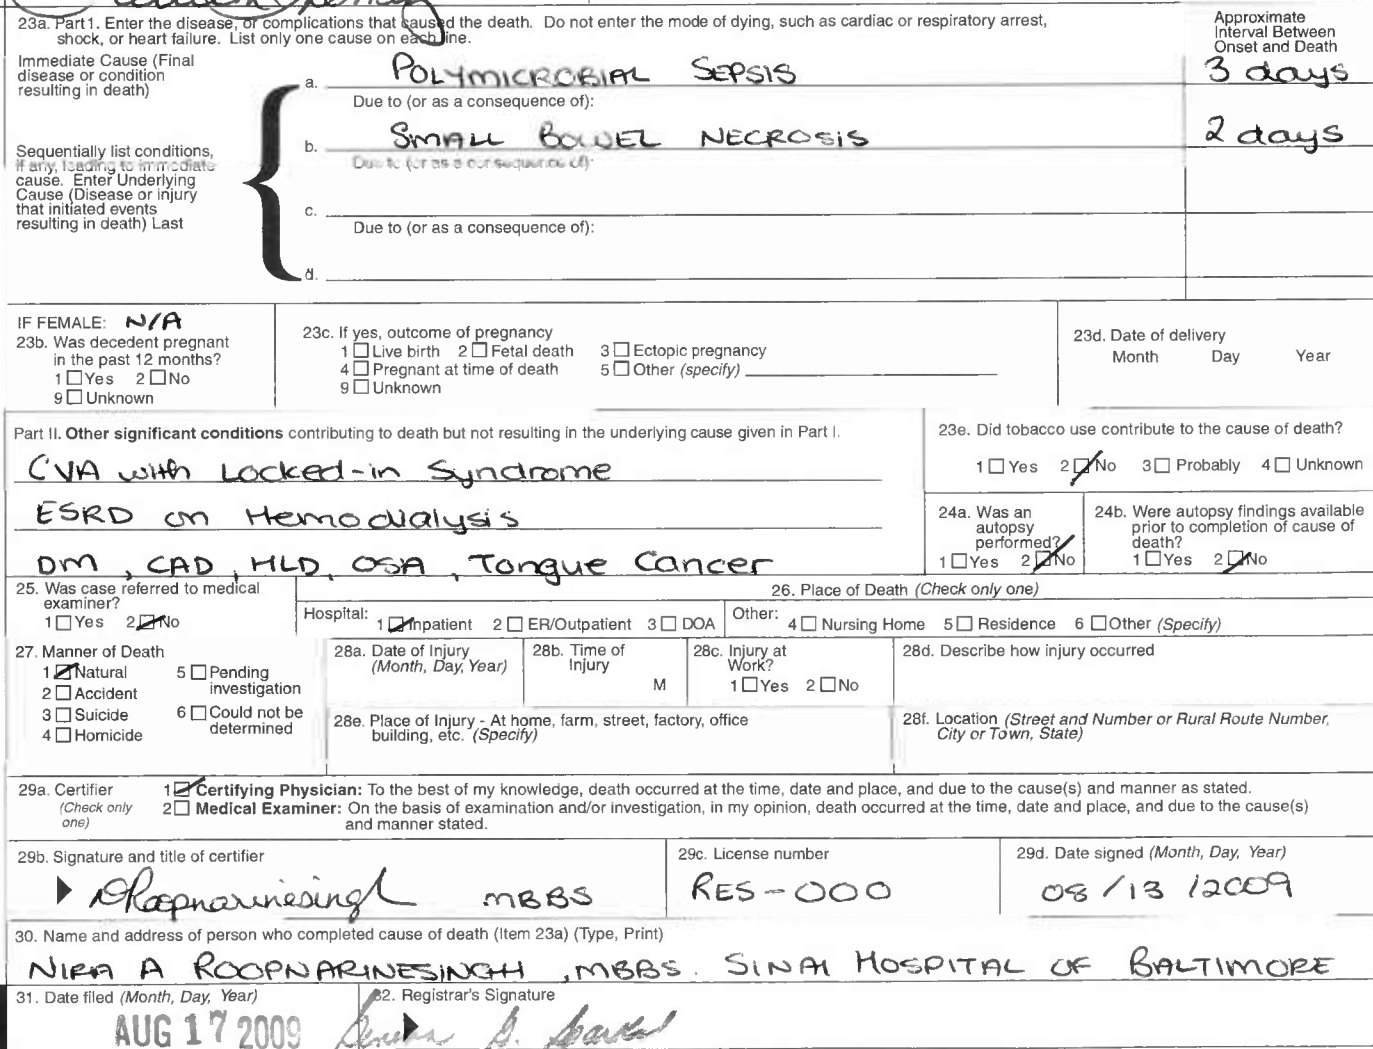 23a. Part 1. Enter the disease, or complications that caused the death. Do not enter the mode of dying, such as cardiac or respiratory arrest,
shock, or heart failure. List only one cause on each line.
Approximate
Interval Between
Onset and Death
Immediate Cause (Final
disease or condition
resulting in death)
a. POLYMICROBIAL SEPSIS 3 days
Due to (or as a consequence of):
b. SMALL BOWEL NECROSIS 2 days
Due to (or as a consequence of):
Sequentially list conditions,
if any, leading to immediate
cause. Enter Underlying
Cause (Disease or injury
that initiated events
resulting in death) Last
c.
Due to (or as a consequence of):
d.
IF FEMALE: N/A
23b. Was decedent pregnant
in the past 12 months?
1 ☐ Yes 2 ☐ No
9 ☐ Unknown
23c. If yes, outcome of pregnancy
1 ☐ Live birth 2 ☐ Fetal death 3 ☐ Ectopic pregnancy
4 ☐ Pregnant at time of death 5 ☐ Other (specify)
9 ☐ Unknown
23d. Date of delivery
Month Day Year
Part II. Other significant conditions contributing to death but not resulting in the underlying cause given in Part I.
CVA with Locked-in Syndrome
ESRD on Hemodialysis
DM, CAD, HLD, OSA, Tongue Cancer
23e. Did tobacco use contribute to the cause of death?
1 ☐ Yes 2 ☑ No 3 ☐ Probably 4 ☐ Unknown
24a. Was an
autopsy
performed?
1 ☐ Yes 2 ☑ No
24b. Were autopsy findings available
prior to completion of cause of
death?
1 ☐ Yes 2 ☑ No
25. Was case referred to medical
examiner?
1 ☐ Yes 2 ☑ No
26. Place of Death (Check only one)
Hospital: 1 ☑ Inpatient 2 ☐ ER/Outpatient 3 ☐ DOA Other: 4 ☐ Nursing Home 5 ☐ Residence 6 ☐ Other (Specify)
27. Manner of Death
1 ☑ Natural 5 ☐ Pending
investigation
2 ☐ Accident
3 ☐ Suicide 6 ☐ Could not be
determined
4 ☐ Homicide
28a. Date of Injury
(Month, Day, Year)
28b. Time of
Injury
M
28c. Injury at
Work?
1 ☐ Yes 2 ☐ No
28d. Describe how injury occurred
28e. Place of Injury - At home, farm, street, factory, office
building, etc. (Specify)
28f. Location (Street and Number or Rural Route Number,
City or Town, State)
29a. Certifier
(Check only
one)
1 ☑ Certifying Physician: To the best of my knowledge, death occurred at the time, date and place, and due to the cause(s) and manner as stated.
2 ☐ Medical Examiner: On the basis of examination and/or investigation, in my opinion, death occurred at the time, date and place, and due to the cause(s)
and manner stated.
29b. Signature and title of certifier
NRoopnarinesingh MBBS
29c. License number
RES-000
29d. Date signed (Month, Day, Year)
08/13/2009
30. Name and address of person who completed cause of death (Item 23a) (Type, Print)
NIRA A ROOPNARINESINGH, MBBS. SINAI HOSPITAL OF BALTIMORE
31. Date filed (Month, Day, Year)
AUG 17 2009
32. Registrar's Signature